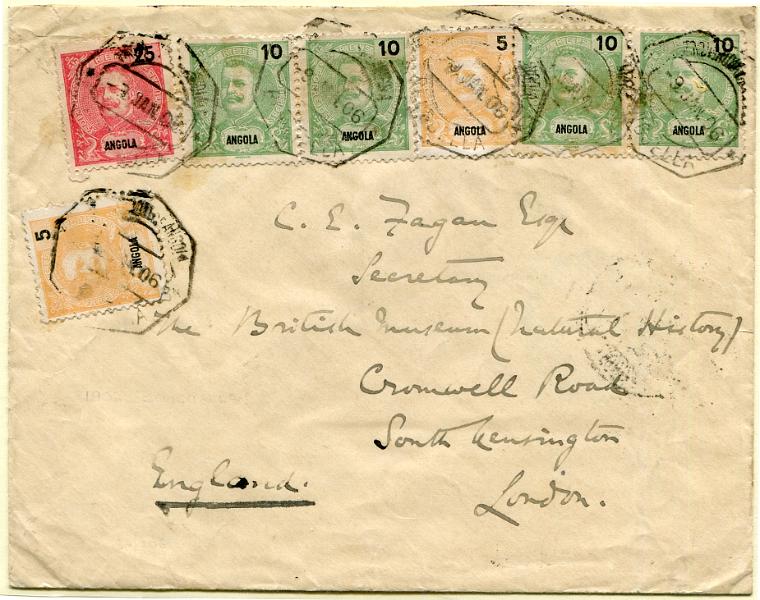 25 10 10 5 10 10
ANGOLA ANGOLA ANGOLA ANGOLA ANGOLA ANGOLA
9 JAN. 06
5
ANGOLA
C. E. Fagan Esqr
Secretary
The British Museum (Natural History)
Cromwell Road
South Kensington
England. London.